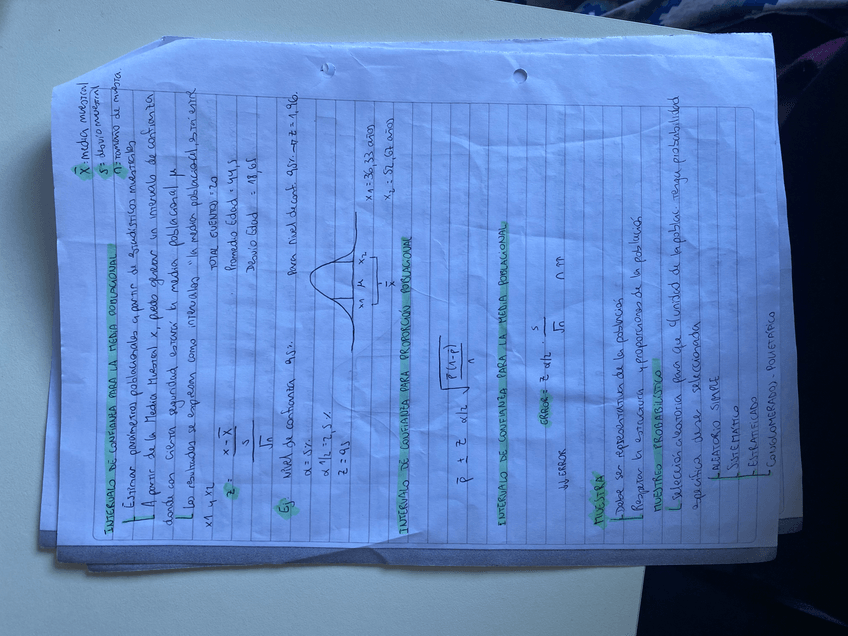 X̄ = media muestral
S = desvío muestral
n = tamaño de muestra
INTERVALO DE CONFIANZA PARA LA MEDIA POBLACIONAL
Estimar parámetros poblacionales a partir de estadísticos muestrales
A partir de la Media Muestral x, puedo generar un intervalo de confianza
donde con cierta seguridad estará la media poblacional μ
Los resultados se expresan como intervalos "la media poblacional está entre
x1 y x2
TOTAL EVENTOS = 20
z = x - X̄ / s / √n
Promedio Edad = 44,5
Desvío Edad = 18,65
Ej
Nivel de confianza 95%
Para nivel de conf. 95% → z = 1,96.
α = 5%
α 1/2 = 2,5%
z = 95
x1 μ x2
X̄
x1 = 36,33 años
x2 = 52,67 años
INTERVALO DE CONFIANZA PARA PROPORCIÓN POBLACIONAL
p̄ ± z α/2 √ p̄(1-p̄) / n
INTERVALO DE CONFIANZA PARA LA MEDIA POBLACIONAL
ERROR = z α/2 · s / √n
↓↓ ERROR n ↑↑
MUESTRA
Debe ser representativa de la población
Respetar la estructura y proporciones de la población
MUESTREO PROBABILÍSTICO
Selección aleatoria para que c/unidad de la poblac tenga probabilidad
específica de ser seleccionada
ALEATORIO SIMPLE
SISTEMÁTICO
ESTRATIFICADO
CONGLOMERADO, POLIETÁPICO